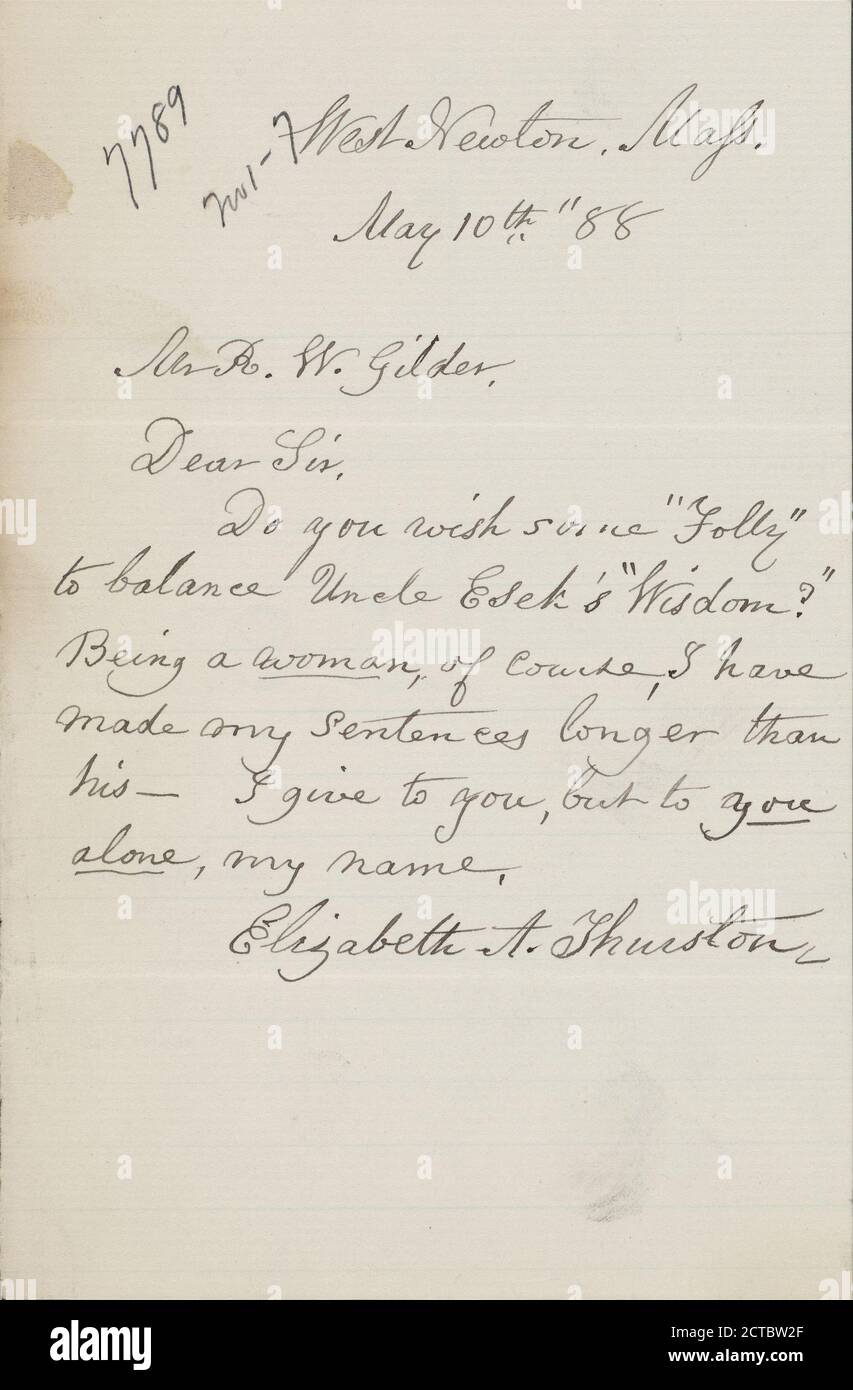 7789
West Newton, Mass.
May 10th "88
Mr R. W. Gilder,
Dear Sir,
Do you wish some "Folly"
to balance Uncle Esek's "Wisdom?"
Being a woman, of course, I have
made my sentences longer than
his— I give to you, but to you
alone, my name,
Elizabeth A. Thurston
alamy
Image ID: 2CTBW2F
www.alamy.com